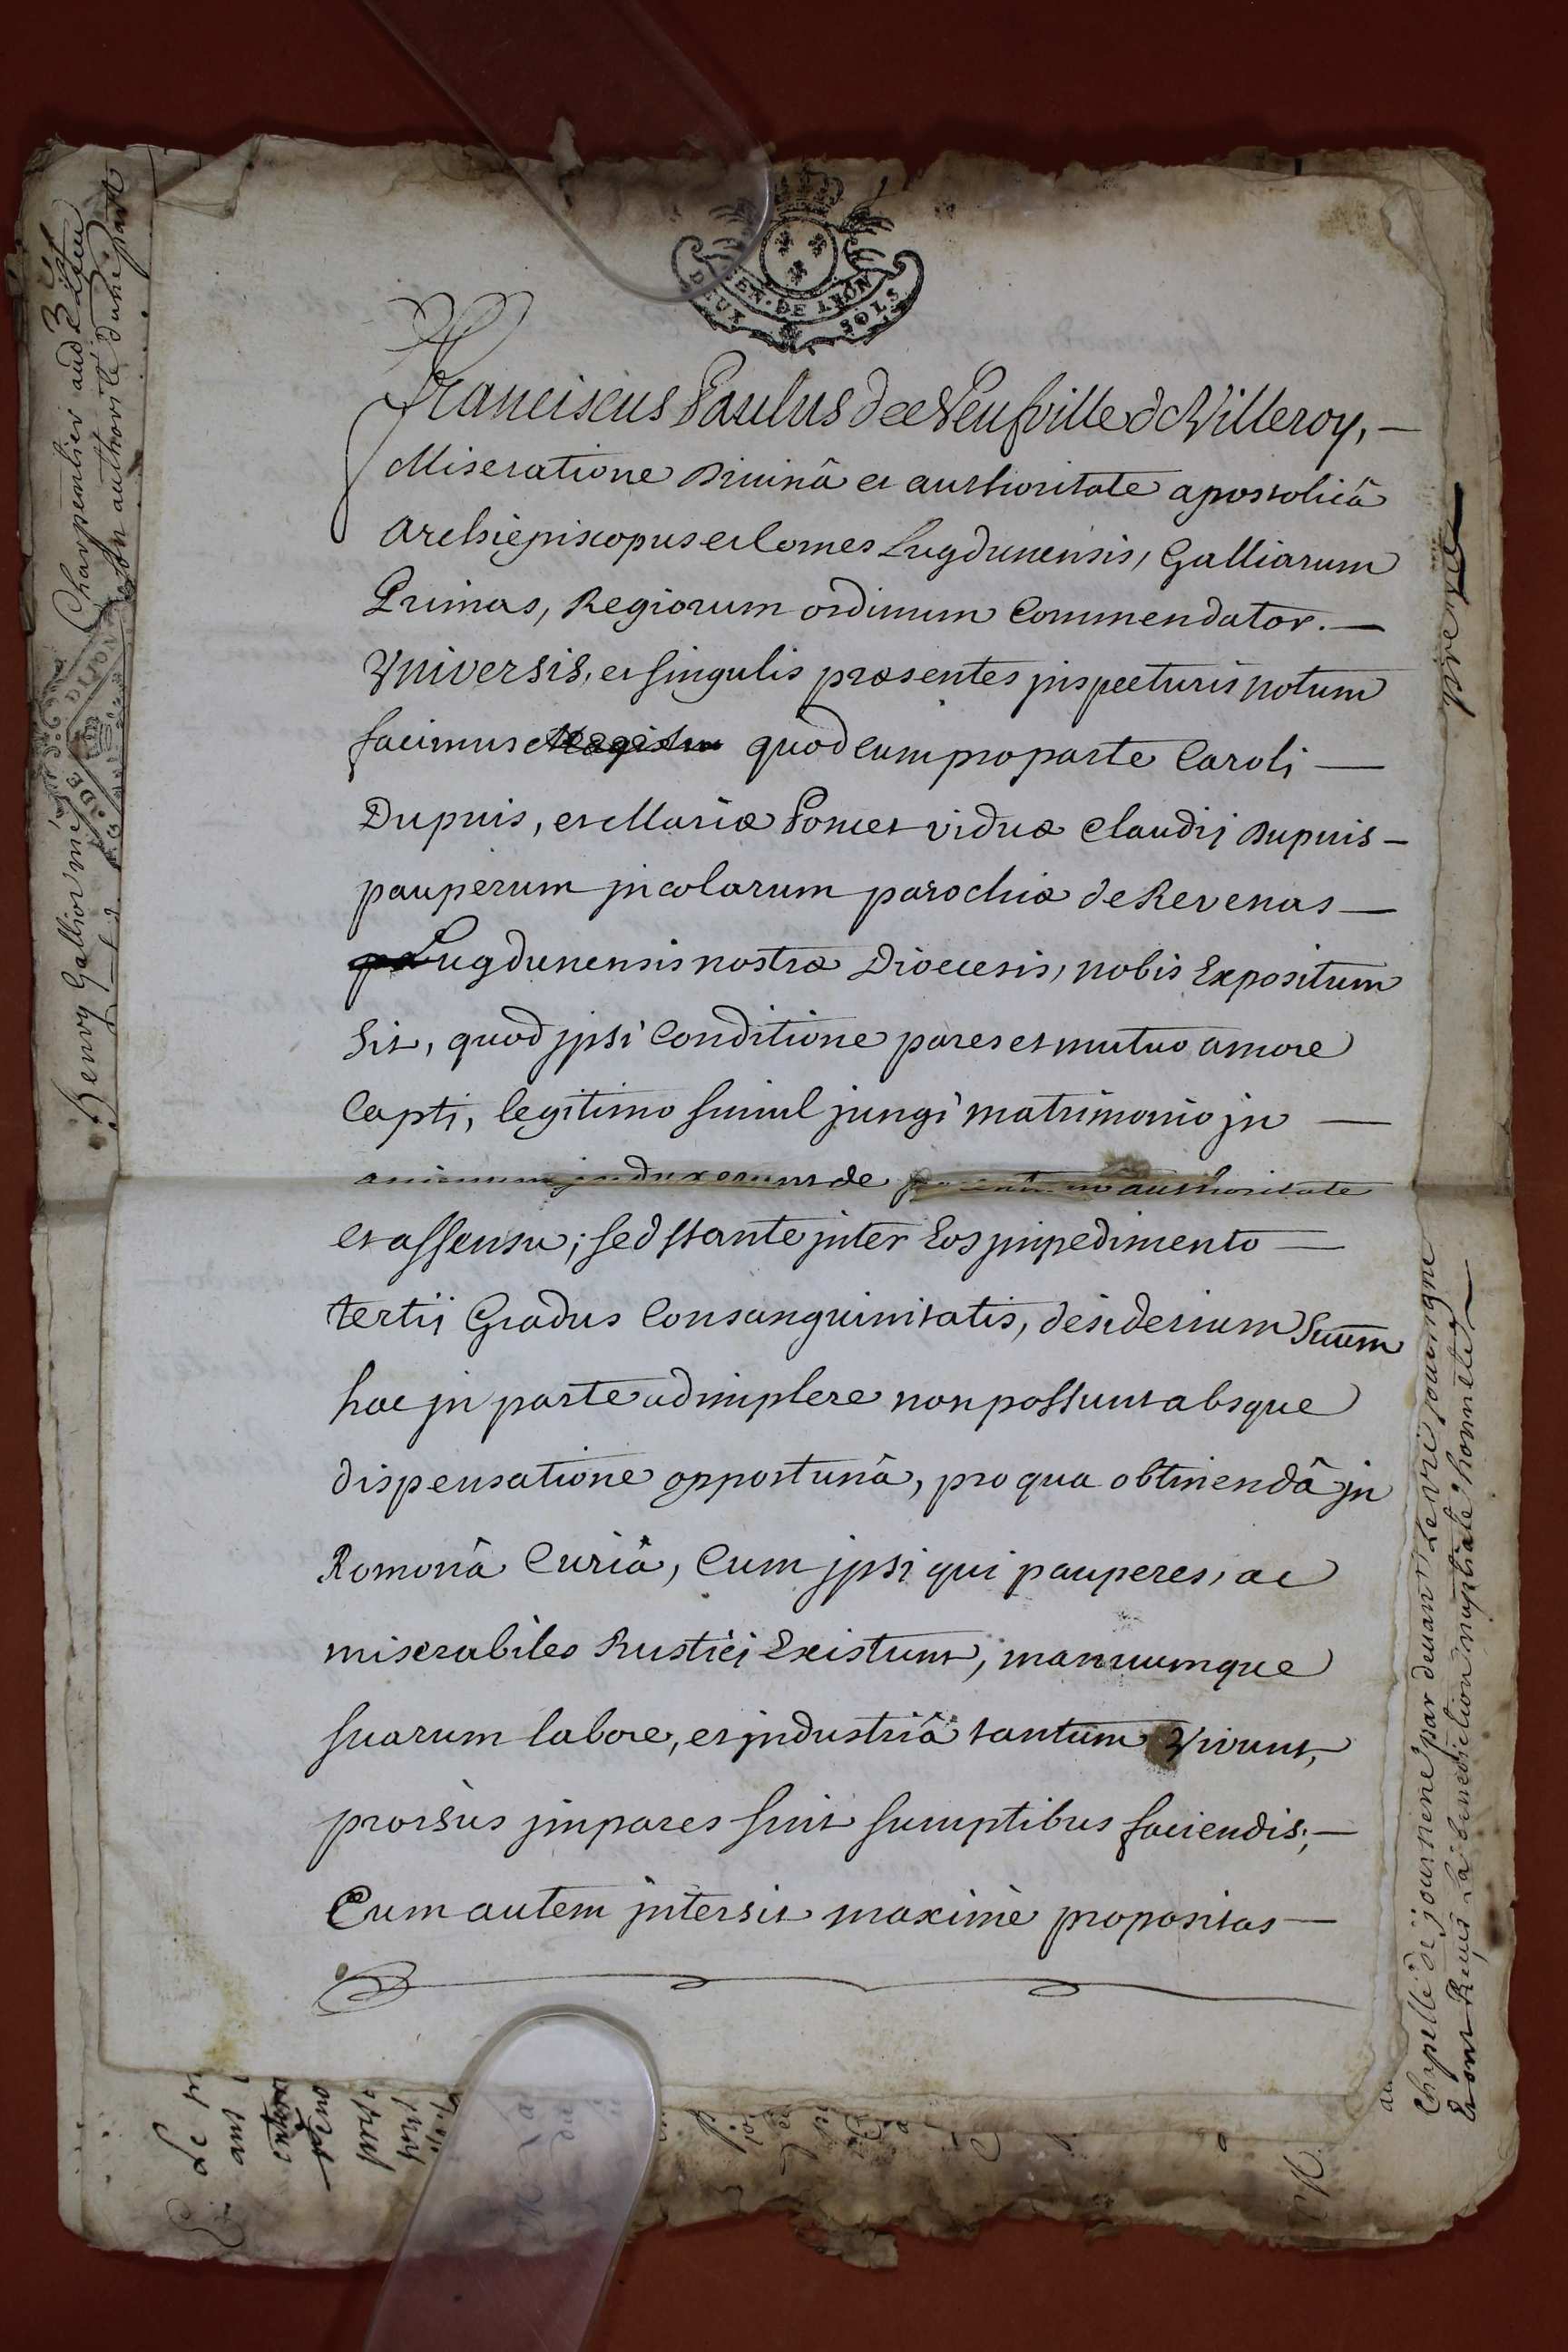 GEN. DE LYON
DEUX SOLS
Franciscus Paulus de Neufville de Villeroy, —
Miseratione Diuinâ et authoritate apostolicâ
Archiepiscopus et Comes Lugdunensis, Galliarum
Primas, Regiorum ordinum Commendator. —
Vniversis, et singulis præsentes jnspecturis notum
facimus quod cum pro parte Caroli —
Dupuis, et Mariæ Poncet viduæ Claudij Dupuis —
pauperum jncolarum parochiæ de Revenas —
Lugdunensis nostræ Dioecesis, nobis Expositum
sit, quod jpsi Conditione pares et mutuo amore
Capti, legitimo simul jungi matrimonio jn —
animum jnduxerunt de parentum authoritate
et assensu; sed stante jnter Eos jmpedimento —
tertij Gradus Consanguinitatis, desiderium suum
hac jn parte adimplere non possunt absque
dispensatione opportunâ, pro qua obtinendâ jn
Romonâ Curiâ, Cum jpsi qui pauperes, ac
miserabiles Rustici Existunt, manuumque
suarum labore, et jndustriâ tantum Vivunt,
prorsùs jmpares sint sumptibus faciendis; —
Cum autem jntersit maximè propositas —
Charpentier aud. Lieu
et son authorité d'une part
DE DIJON
henry Gallion me
pre
Chapelle de journené par deuant Le vri
Eront Reçus La benediction nuptiale honneste
Le
ant